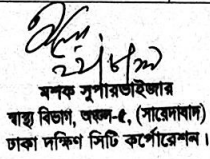 ২২/৮/২২
মশক সুপারভাইজার
স্বাস্থ্য বিভাগ, অঞ্চল-৫, (সায়েদাবাদ)
ঢাকা দক্ষিণ সিটি কর্পোরেশন।